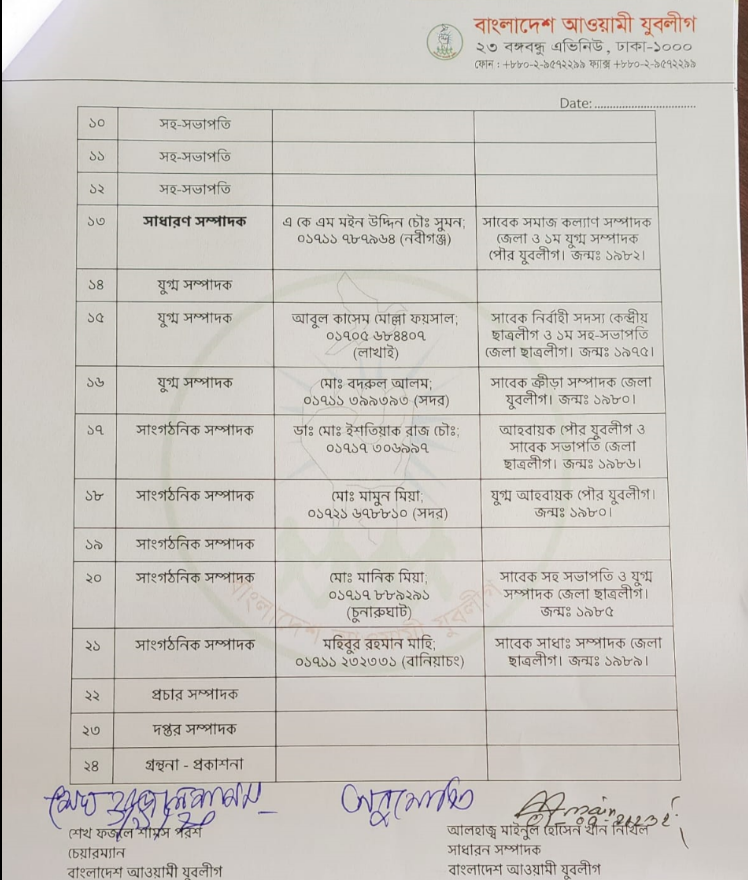 বাংলাদেশ আওয়ামী যুবলীগ
২৩ বঙ্গবন্ধু এভিনিউ, ঢাকা-১০০০
ফোন : +৮৮০-২-৯৫৭২২৯৯ ফ্যাক্স +৮৮০-২-৯৫৭২২৯৯
Date:
১০ সহ-সভাপতি
১১ সহ-সভাপতি
১২ সহ-সভাপতি
১৩ সাধারণ সম্পাদক এ কে এম মইন উদ্দিন চৌঃ সুমন; সাবেক সমাজ কল্যাণ সম্পাদক
০১৭১১ ৭৮৭৯৬৪ (নবীগঞ্জ) জেলা ও ১ম যুগ্ম সম্পাদক
পৌর যুবলীগ। জন্মঃ ১৯৮২।
১৪ যুগ্ম সম্পাদক
১৫ যুগ্ম সম্পাদক আবুল কাসেম মোল্লা ফয়সাল; সাবেক নির্বাহী সদস্য কেন্দ্রীয়
০১৭০৫ ৬৮৪৪০৭ ছাত্রলীগ ও ১ম সহ-সভাপতি
(লাখাই) জেলা ছাত্রলীগ। জন্মঃ ১৯৭৫।
১৬ যুগ্ম সম্পাদক মোঃ বদরুল আলম; সাবেক ক্রীড়া সম্পাদক জেলা
০১৭১১ ৩৯৯৩৯৩ (সদর) যুবলীগ। জন্মঃ ১৯৮০।
১৭ সাংগঠনিক সম্পাদক ডাঃ মোঃ ইশতিয়াক রাজ চৌঃ; আহবায়ক পৌর যুবলীগ ও
০১৭১৭ ৩০৬৯৯৭ সাবেক সভাপতি জেলা
ছাত্রলীগ। জন্মঃ ১৯৮৬।
১৮ সাংগঠনিক সম্পাদক মোঃ মামুন মিয়া; যুগ্ম আহবায়ক পৌর যুবলীগ।
০১৭২১ ৬৭৮৮১০ (সদর) জন্মঃ ১৯৮০।
১৯ সাংগঠনিক সম্পাদক
২০ সাংগঠনিক সম্পাদক মোঃ মানিক মিয়া; সাবেক সহ সভাপতি ও যুগ্ম
০১৭১৭ ৮৮৯২৯১ সম্পাদক জেলা ছাত্রলীগ।
(চুনারুঘাট) জন্মঃ ১৯৮৫
২১ সাংগঠনিক সম্পাদক মহিবুর রহমান মাহি; সাবেক সাধাঃ সম্পাদক জেলা
০১৭১১ ২৩২৩৩১ (বানিয়াচং) ছাত্রলীগ। জন্মঃ ১৯৮৯।
বাংলাদেশ আওয়ামী যুবলীগ
২২ প্রচার সম্পাদক
২৩ দপ্তর সম্পাদক
২৪ গ্রন্থনা - প্রকাশনা
অনুমোদিত
শেখ ফজলে শামস পরশ
চেয়ারম্যান
বাংলাদেশ আওয়ামী যুবলীগ
আলহাজ্ব মাইনুল হোসেন খান নিখিল
সাধারন সম্পাদক
বাংলাদেশ আওয়ামী যুবলীগ